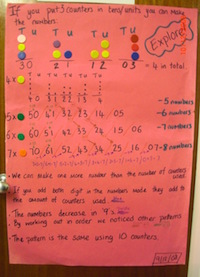 If you put 3 counters in tens/units you can make
the numbers.
Explore
T U T U T U T U
30 21 12 03 = 4 in total.
4x T U T U T U T U T U
40 31 22 13 4
- 5 numbers
5x 50 41 32 23 14 05 - 6 numbers
6x 60 51 42 33 24 15 06 - 7 numbers
7x 70 61 52 43 34 25 16 07 - 8 numbers
• We can make one more number than the number of counters
used.
• If you add both digit in the numbers made they add to
the amount of counters used.
• The numbers decrease in 9's
• By working out in order we noticed other patterns
• The pattern is the same using 10 counters.